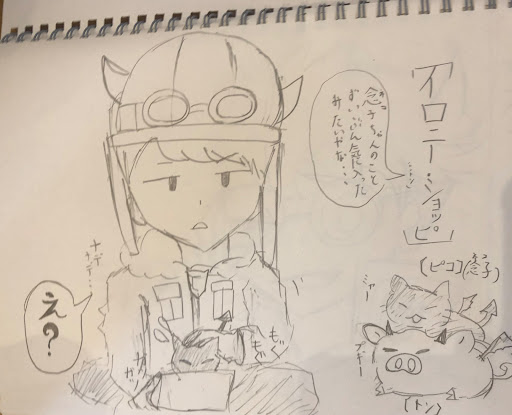 「イロニー・ショッピ」
念子ちゃんのこと
ずいぶん気に入った
みたいやな…
ナデ
ナデ…
え?
もぐ
もぐ
(ピコ)(念子)
ミャー
プギー
(トン)